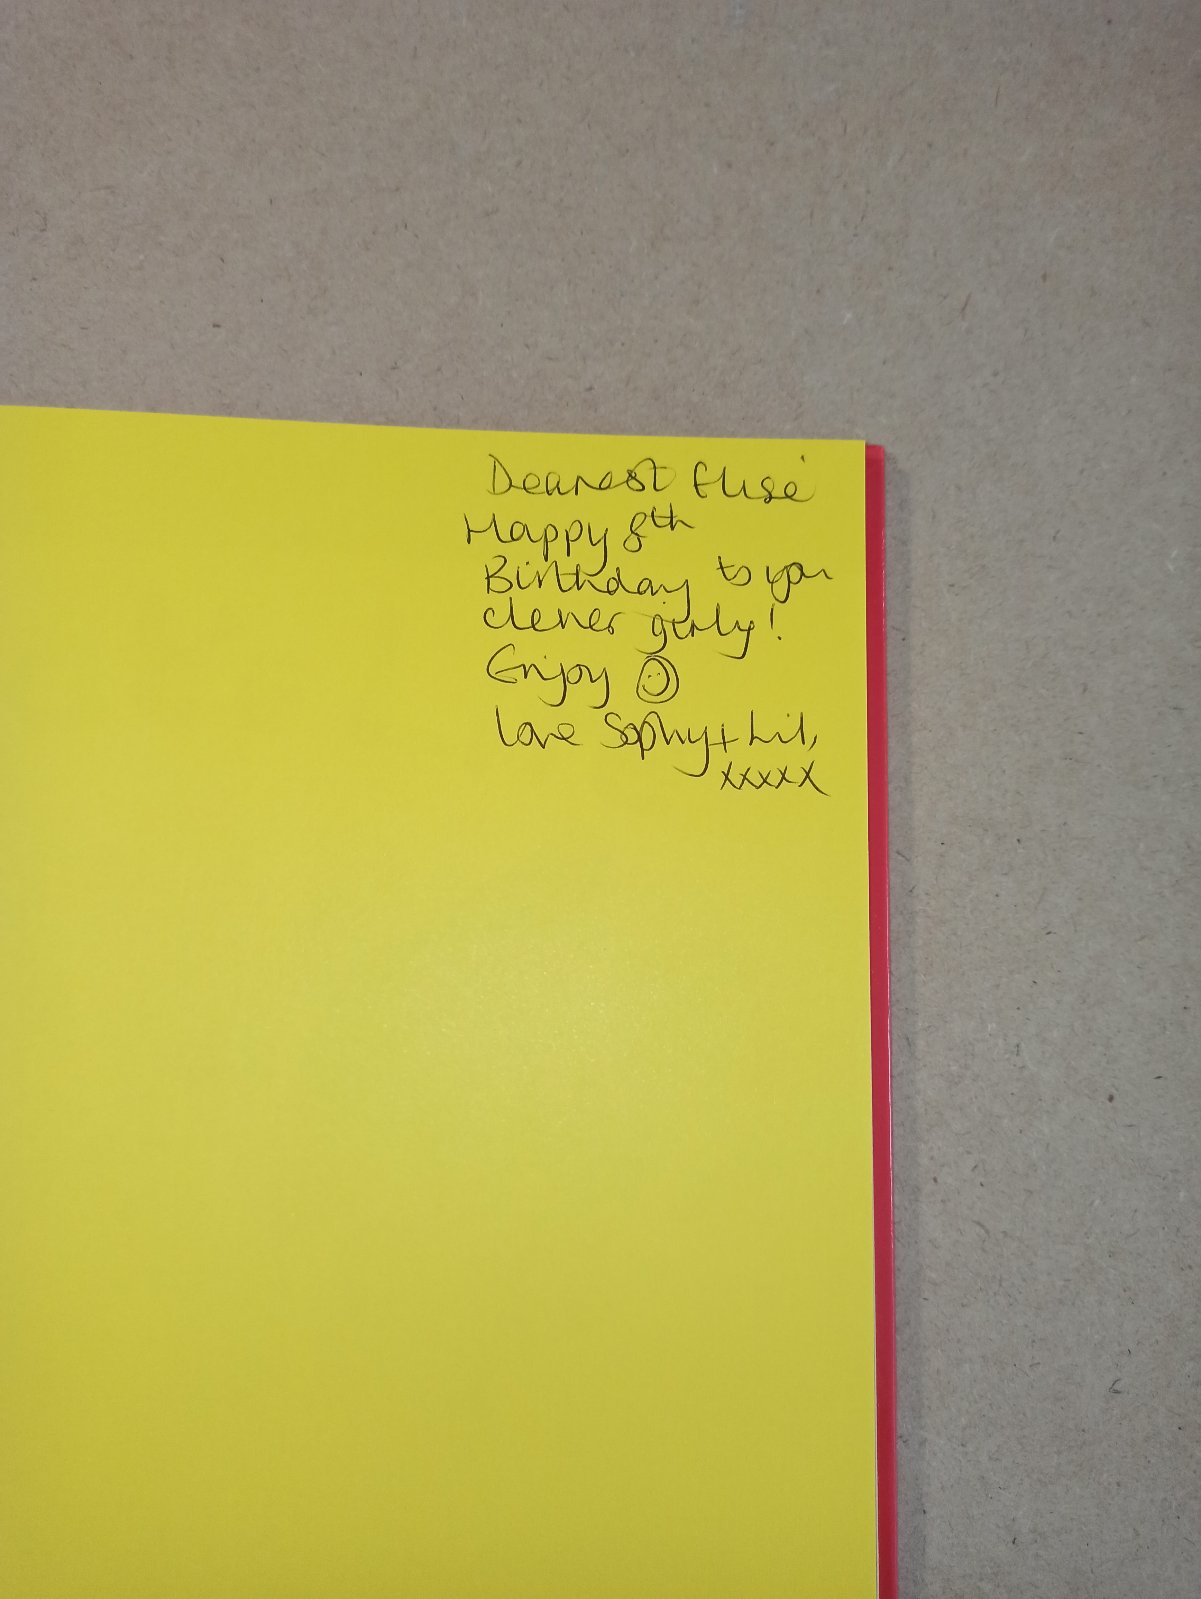 Dearest Elise
Happy 8th
Birthday to you
clever girly!
Enjoy ☺
Love Sophy + Lil,
xxxxx